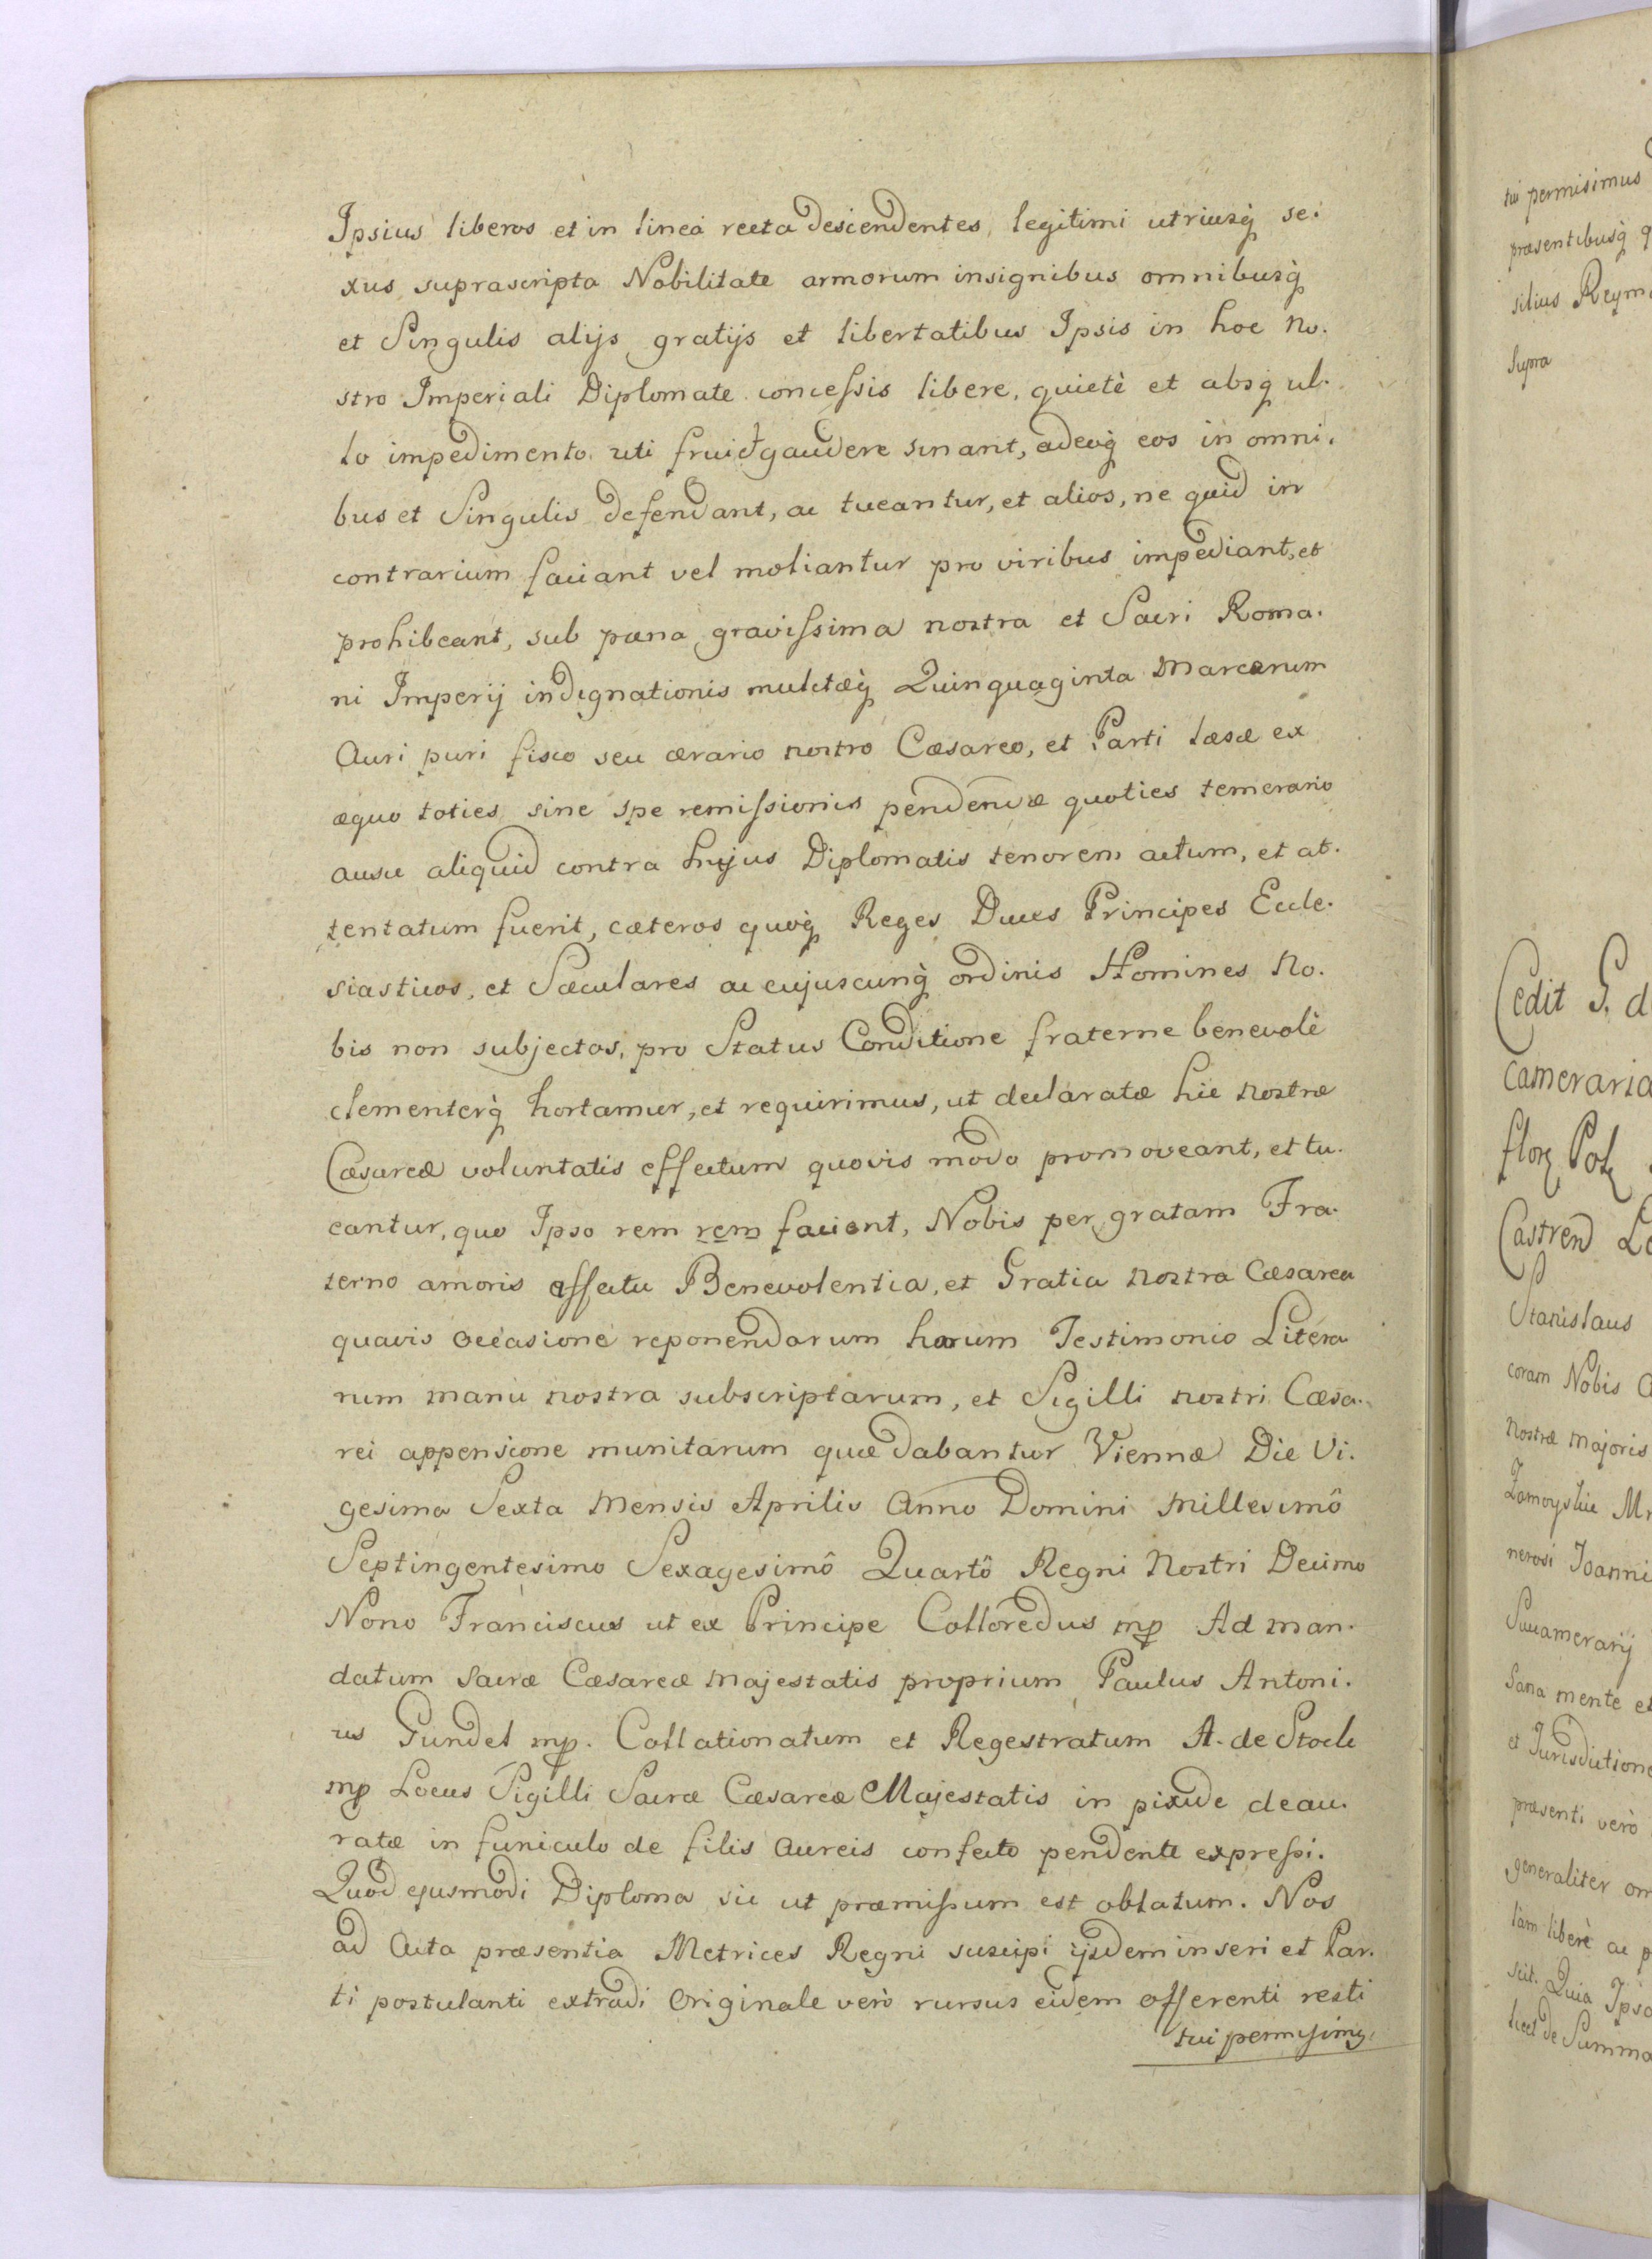 Ipsius liberos et in linea recta descendentes, legitimi utriusq́ se.
xus suprascripta Nobilitate armorum insignibus omnibusq́
et Singulis alijs gratijs et libertatibus Ipsis in hoc No.
stro Imperiali Diplomate concessis libere, quietè et absq́ ul.
lo impedimento uti frui et gaudere sinant, adeoq́ eos in omni.
bus et Singulis defendant, ac tueantur, et alios, ne quid in
contrarium faciant vel moliantur pro viribus impediant, et
prohibeant, sub pæna gravissima nostra et Sacri Roma.
ni Imperij indignationis mulctæq́ Quinquaginta Marcarum
Auri puri fisco seu ærario nostro Cæsareo, et Parti læsæ ex
æquo toties sine spe remissionis pendendæ quoties temerario
ausu aliquid contra hujus Diplomatis tenorem actum, et at.
tentatum fuerit, cæteros quoq́ Reges Duces Principes Eccle.
siasticos, et Sæculares ac cujuscunq́ ordinis Homines No.
bis non subjectos, pro Status Conditione fraterne benevolè
clementerq́ hortamur, et requirimus, ut declaratæ hic nostræ
Cæsareæ voluntatis effectum quovis modo promoveant, et tu.
eantur, quo Ipso rem rem facient, Nobis per gratam Fra.
terno amoris affectu Benevolentia, et Gratia nostra Cæsarea
quavis occasione reponendarum harum Testimonio Litera
rum manu nostra subscriptarum, et Sigilli nostri Cæsa.
rei appensione munitarum quæ dabantur Viennæ Die Vi.
gesima Sexta Mensis Aprilis Anno Domini Millesimô
Septingentesimo Sexagesimô Quartô Regni Nostri Decimo
Nono Franciscus ut ex Principe Colloredus mp Ad man.
datum Sacræ Cæsareæ Majestatis proprium Paulus Antoni.
us Gundel mp. Collationatum et Regestratum A. de Stock
mp Locus Sigilli Sacræ Cæsareæ Majestatis in pixide deau.
ratæ in funiculo de filis Aureis confecto pendente expressi.
Quod ejusmodi Diploma sic ut præmissum est oblatum. Nos
ad Acta præsentia Metrices Regni suscipi ijsdem inseri et Par.
ti postulanti extradi Originale verò rursus eidem offerenti resti
tui permisimg.
tui permisimus
præsentibusq́
silius
Supra
Cedit G. d
Cameraria
Castrend
Stanislaus
coram Nobis
Nostræ Majoris
nerosi Joanni
Succamerarij
Sana mente et
et Jurisdictione
præsenti verò
generaliter om
tàm liberè ac p
scit. Quia Ipso
licet de Summa